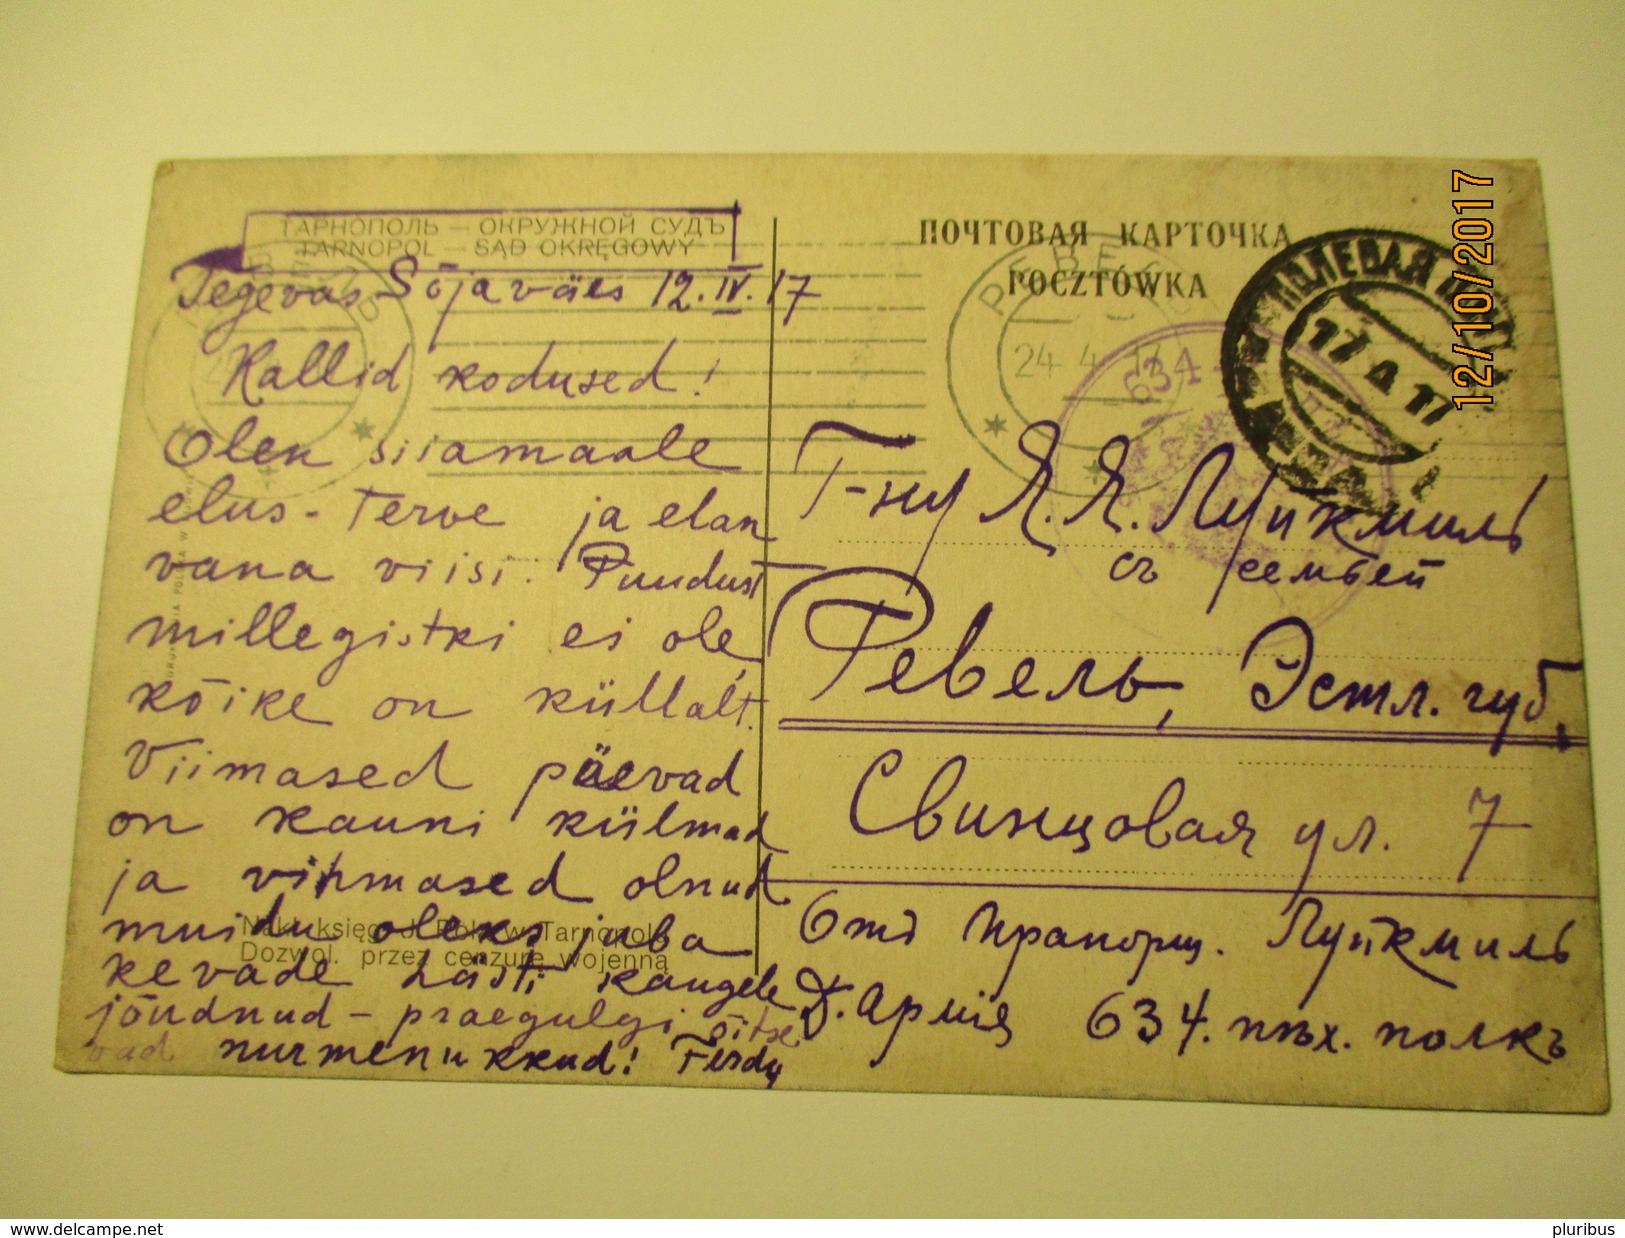 ТАРНОПОЛЬ — ОКРУЖНОЙ СУДЪ
TARNOPOL — SĄD OKRĘGOWY
Tegevas Sõjaväes 12.IV.17
Kallid kodused!
Olen siiamaale
elus-terve ja elan
vana viisi. Puudust
millegistki ei ole,
kõike on küllalt.
Viimased päevad
on kauni külmad
ja vihmased olnud
muidu oleks juba
kevade hästi kaugele
jõudnud – praegulgi õitse
vad nurmenukkud! Ferdy
Nakł. księg. J. w Tarnopolu
Dozwol. przez cenzurę wojenną
ПОЧТОВАЯ КАРТОЧКА
POCZTÓWKA
РЕВЕЛЬ
24 4 17
634
ПОЛЕВАЯ
17 4 17
Г-ну Я. Я. Луйкмиль
съ семьей
Ревель, Эстл. губ.
Свинцовая ул. 7
Отъ прапорщ. Луйкмиль
Д. Армія 634. пѣх. полкъ
12/10/2017
www.delcampe.net
pluribus